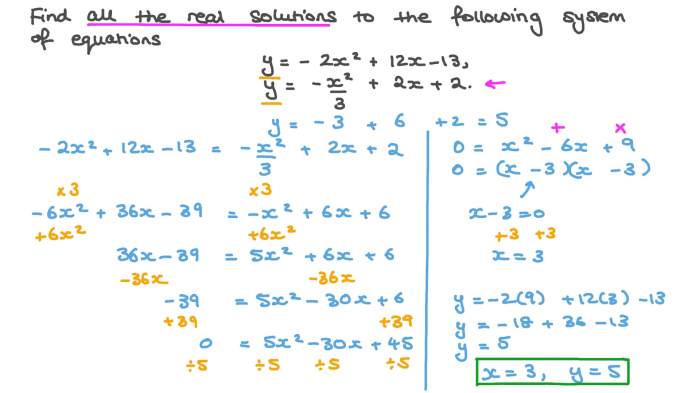 Find all the real solutions to the following system
of equations
y = - 2x² + 12x - 13,
y = - x²/3 + 2x + 2. ←
y = - 3 + 6 + 2 = 5
- 2x² + 12x - 13 = - x²/3 + 2x + 2
x3 x3
- 6x² + 36x - 39 = - x² + 6x + 6
+6x² +6x²
36x - 39 = 5x² + 6x + 6
-36x -36x
- 39 = 5x² - 30x + 6
+39 +39
0 = 5x² - 30x + 45
÷5 ÷5 ÷5 ÷5
+ x
0 = x² - 6x + 9
0 = (x - 3)(x - 3)
x - 3 = 0
+3 +3
x = 3
y = -2(9) + 12(3) - 13
y = - 18 + 36 - 13
y = 5
x = 3, y = 5